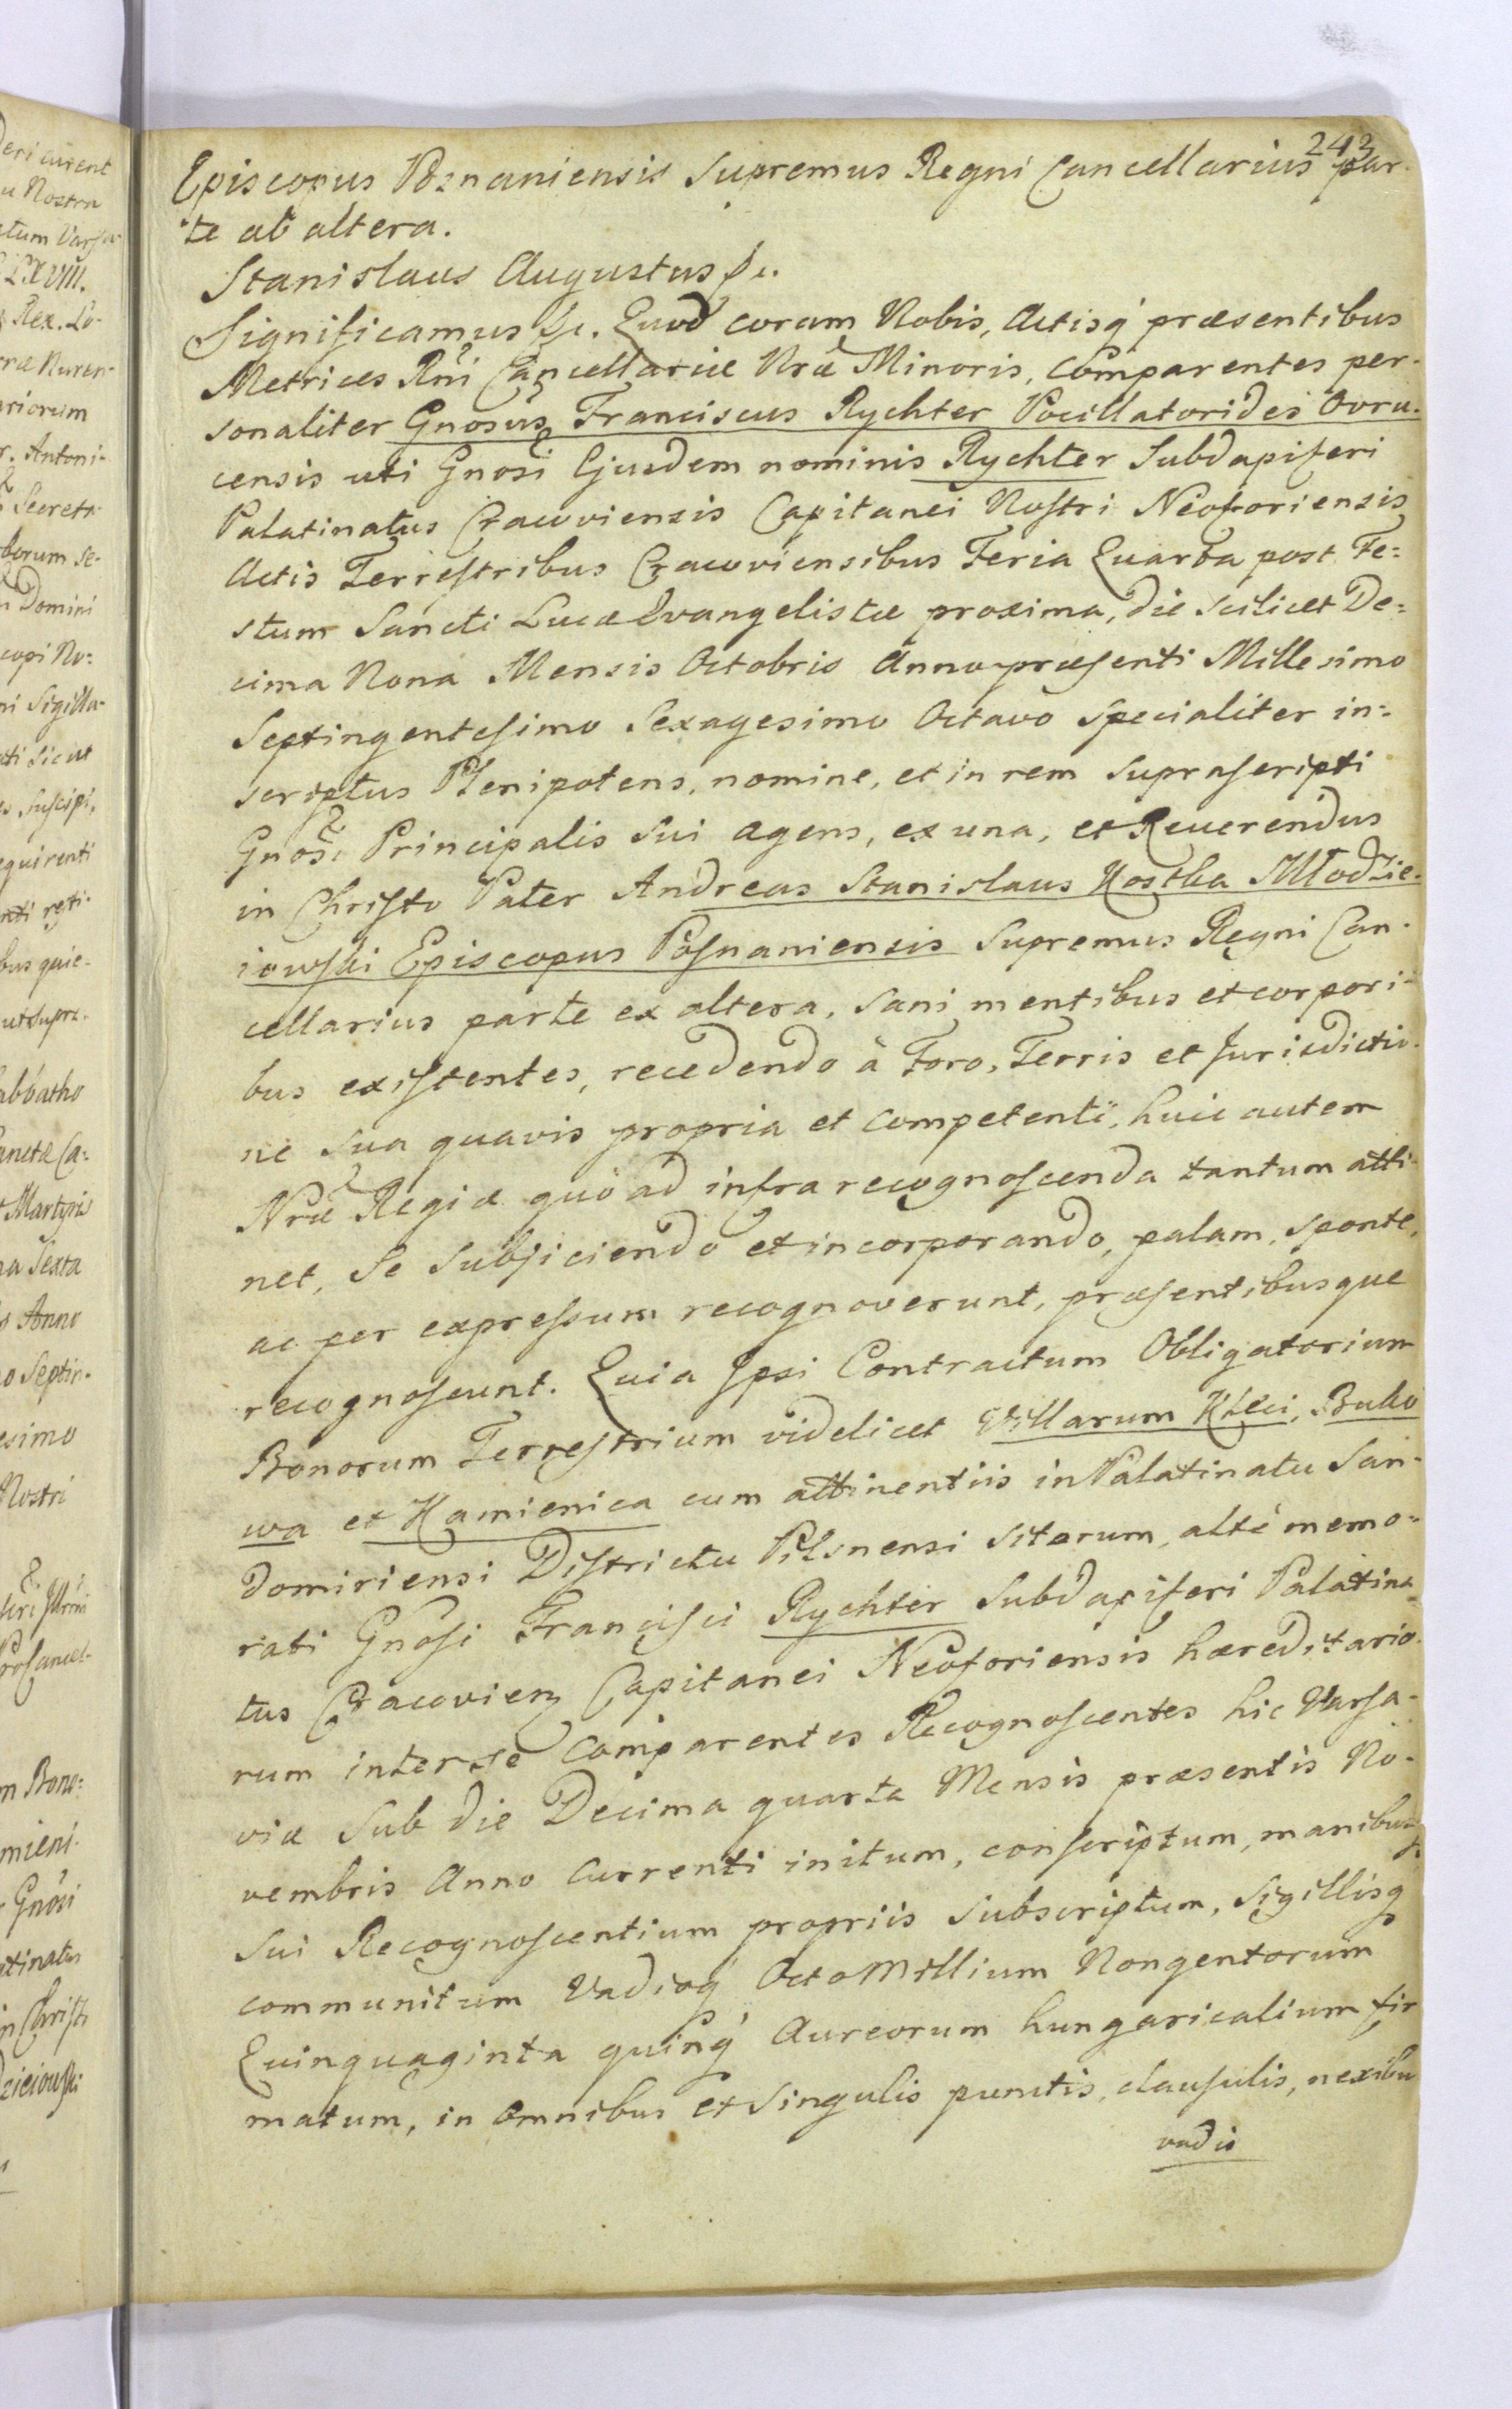 243
Episcopus Poznaniensis Supremus Regni Cancellarius par-
te ab altera.
Stanislaus Augustus &c.
Significamus &c. Quod coram Nobis, Actisq́ præsentibus
Metrices Rñi Cancellariæ Nræ Minoris, Comparentes per-
sonaliter Gnosus Franciscus Rychter Pocillatorides Ovru-
censis uti Gnosi Ejusdem nominis Rychter Subdapiferi
Palatinatus Cracoviensis Capitanei Nostri Neoforiensis
Actis Terrestribus Cracoviensibus Feria Quarta post Fe=
stum Sancti Lucæ Evangelistæ proxima, die scilicet De=
cima Nona Mensis Octobris Anno præsenti Millesimo
Septingentesimo Sexagesimo Octavo Specialiter in=
scriptus Plenipotens, nomine, et in rem suprascripti
Gnosi Principalis Sui agens, ex una, et Reverendus
in Christo Pater Andreas Stanislaus Kostka Młodzie-
iowski Episcopus Posnaniensis Supremus Regni Can-
cellarius parte ex altera, Sani mentibus et corpori-
bus existentes, recedendo à Foro, Terris et Jurisdictio-
ne Sua quavis propria et competenti, huic autem
Nræ Regiæ quo ad infra recognoscenda tantum atti-
net, Se Subjiciendo et incorporando, palam, sponte,
ac per expressum recognoverunt, præsentibusque
recognoscunt. Quia Ipsi Contractum Obligatorium
Bonorum Terrestrium videlicet Villarum Kleci, Buko
wa et Kamienica cum attinentiis in Palatinatu San-
domiriensi Districtu Pilsnensi Sitarum, altè memo-
rati Gnosi Francisci Rychter Subdapiferi Palatina-
tus Cracovien Capitanei Neoforiensis hæreditario-
rum inter se Comparentes Recognoscentes hic Varsa-
viæ Sub die Decima quarta Mensis præsentis No-
vembris Anno Currenti initum, conscriptum, manibusq́
Sui Recognoscentium propriis subscriptum, Sigillisq́
communitum Vadioq́ Octo Millium Nongentorum
Quinquaginta quinq́ Aureorum hungaricalium fir
matum, in omnibus et Singulis punctis, clausulis, nexibu
vadis